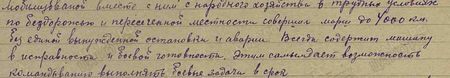 мобилизованой вместе с ним с народного хозяйства в трудных условиях
по бездорожью и пересеченной местности совершил марш до 4000 км.
без единой вынужденной остановки и аварии. Всегда содержит машину
в исправности и боевой готовности. Этим самым дает возможность
командованию выполнять боевые задачи в срок